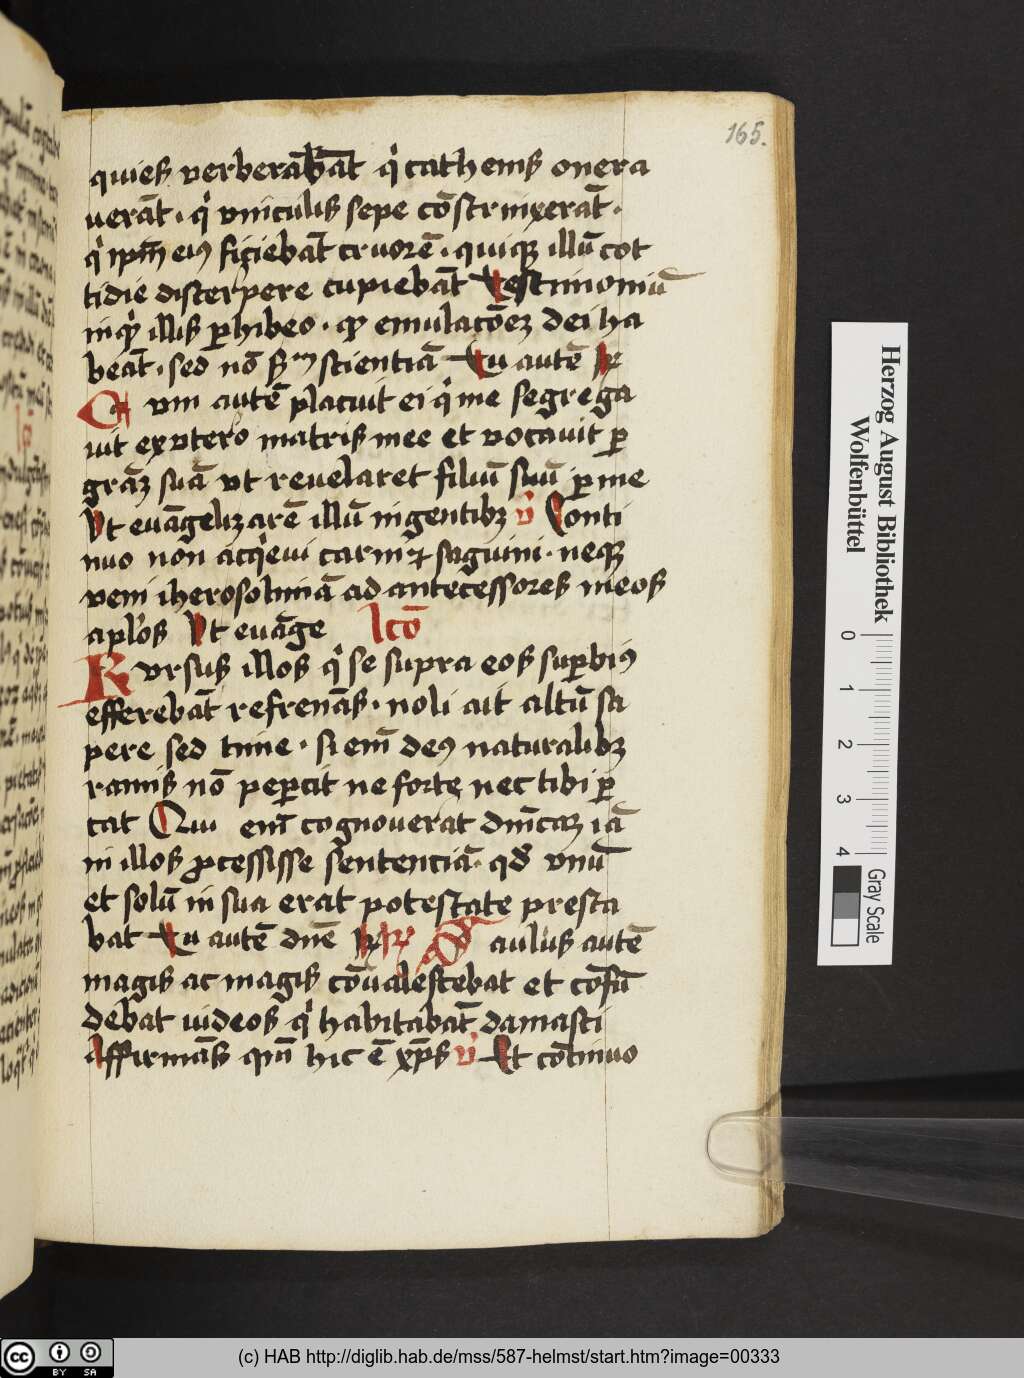 165.
quieß verberāb̄āt qͥ cathenis onera
uerāt · qͥ vnicul̓ß sepe cōstrinxerāt ·
qͥ ip̄m̄ eiꝰ siciebāt cruorē · quiqꝫ illū cot
tidie discerpere cupiebāt Testimoniū
inqͥ illis ꝑhibeo · qꝫ emulac̄oēꝫ dei ha
beāt · sed nō ß̄m scientiā Tu autē ꝶ
Cum autē placuit ei qͥ me segrega
uit ex vtero matris mee et vocauit ꝑ
grāꝫ suā vt reuelaret filiū suū ꝑ me
Vt euāgelizarē illū in gentibꝫ v̓ Conti
nuo non acq̓eui carni ⁊ sāguini · neqꝫ
veni iherosolimā ad antecessores meos
apl̓os Vt euāge lc̄o
Rursus illos qͥ se supra eos suꝑbiꝰ
efferebāt refrenās · noli ait altū sa
pere sed time · si em̄ deꝰ naturalibꝫ
ramis nō peꝑcit ne forte nec tibi ꝑ
cat Qui em̄ cognouerat dm̄caꝫ iā
in illos ꝓcessisse sentenciā · qđ vnū
et solū in sua erat potestate presta
bat Tu autē dn̄e ꝶ ꝶ Saulus autē
magis ac magis cōualescebat et cōfū
debat iudeos qͥ habitabāt damasci
Affirmās qm̄ hic ē xp̄s v̓ Et cōtinuo
Herzog August Bibliothek
Wolfenbüttel
0
1
2
3
4
Gray Scale
cc BY SA
(c) HAB http://diglib.hab.de/mss/587-helmst/start.htm?image=00333